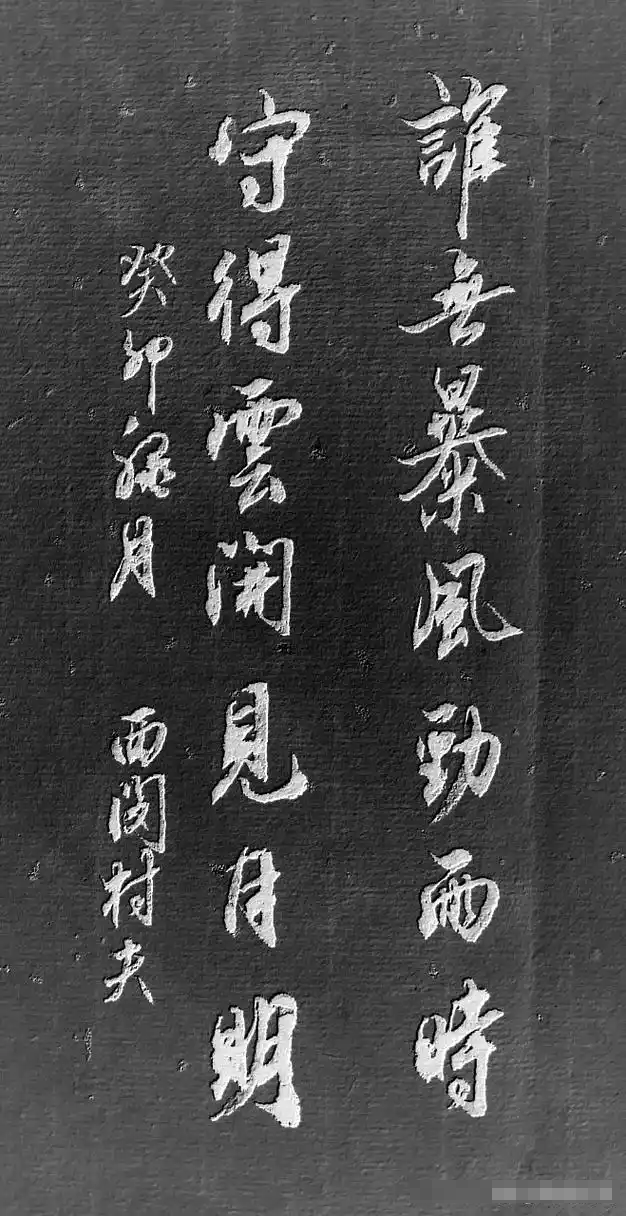 誰無暴風勁雨時
守得雲開見月明
癸卯秋月
西閔村夫